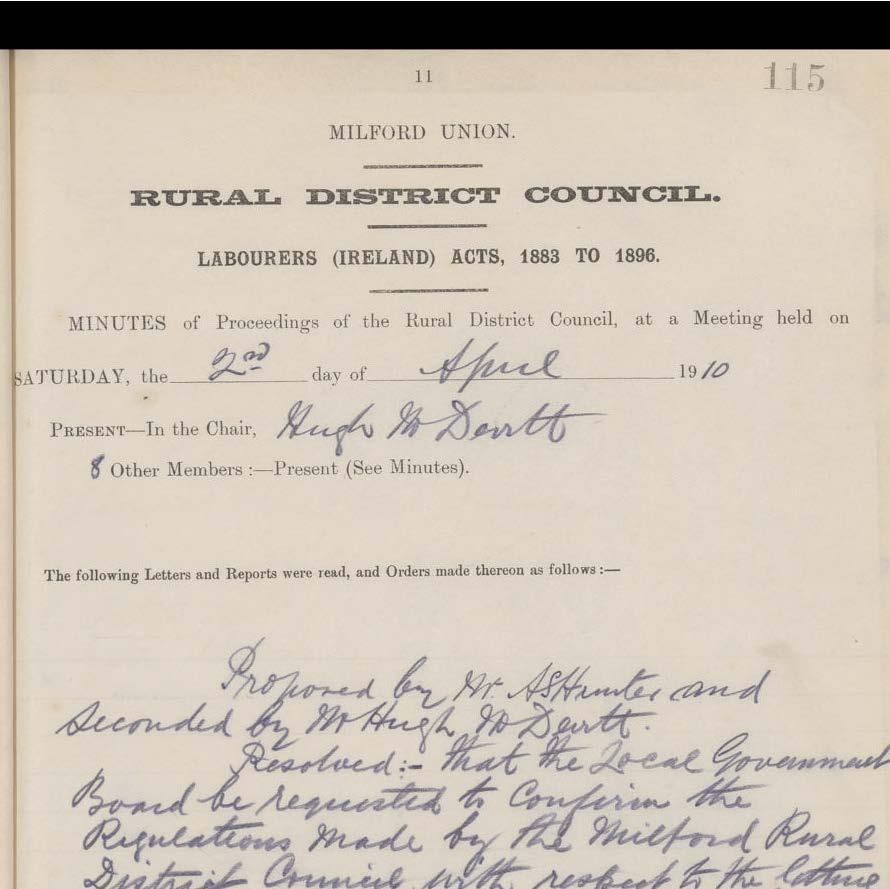 11
115
MILFORD UNION.
RURAL DISTRICT COUNCIL.
LABOURERS (IRELAND) ACTS, 1883 TO 1896.
MINUTES of Proceedings of the Rural District Council, at a Meeting held on
SATURDAY, the 2nd day of April 1910
PRESENT—In the Chair, Hugh McDevitt
8 Other Members :—Present (See Minutes).
The following Letters and Reports were read, and Orders made thereon as follows :—
Proposed by Mr. A S Hunter and
Seconded by Mr Hugh McDevitt.
Resolved:- That the Local Government
Board be requested to Confirm the
Regulations made by the Milford Rural
District Council with respect to the letting